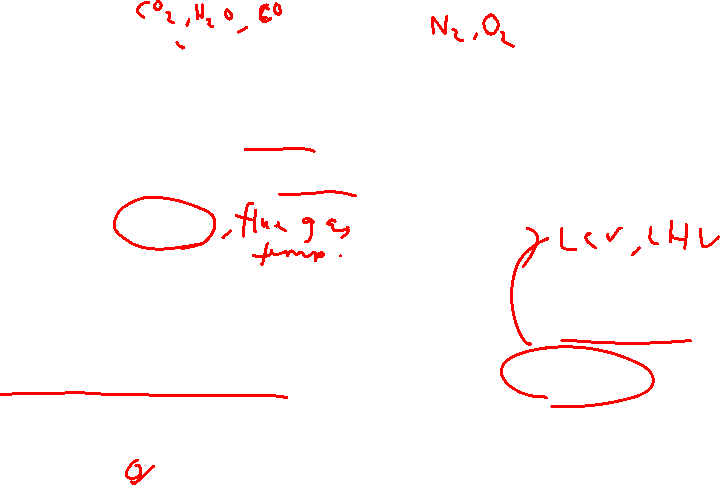 CO2, H2O, CO
N2, O2
, flue gas
temp.
LCV, LHV
Q